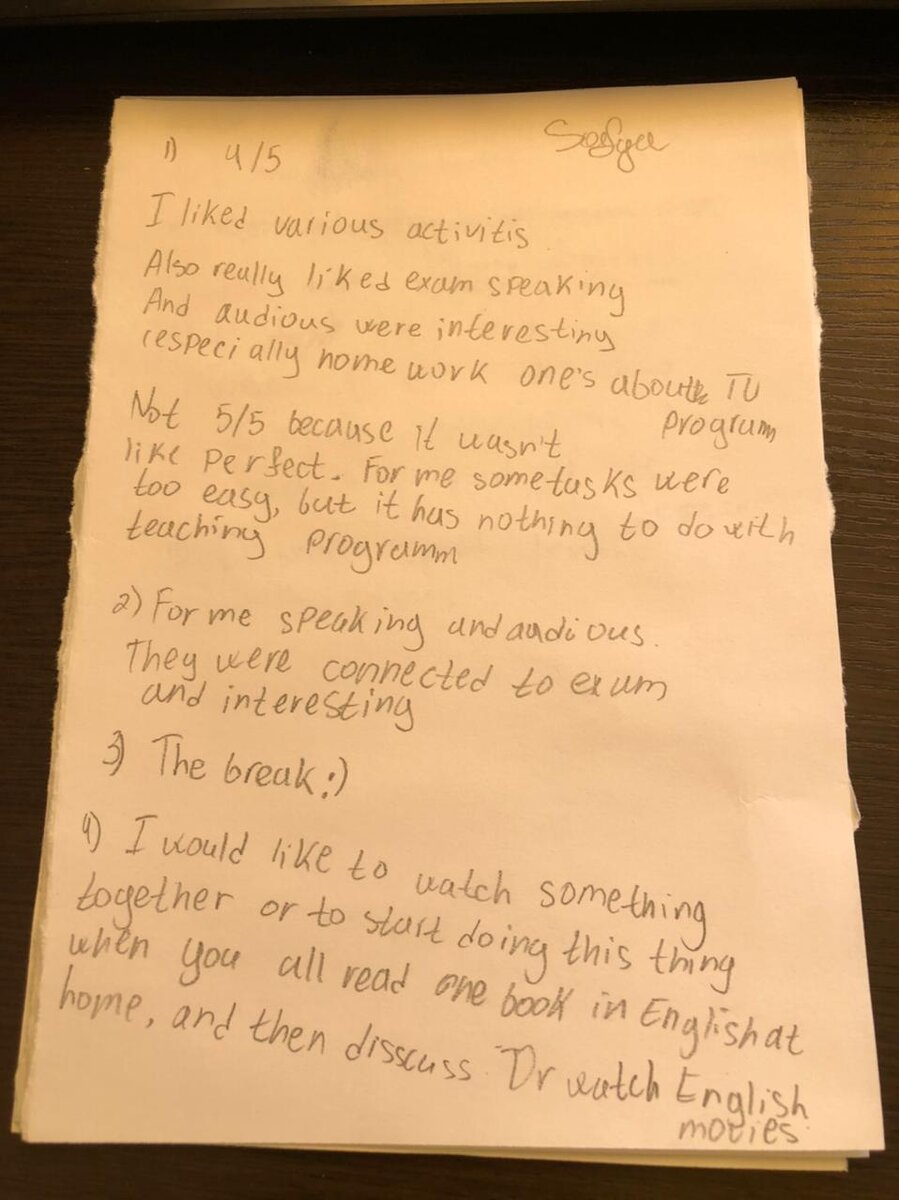 1) 4/5
I liked various activitis
Also really liked exam speaking
And audious were interesting
(especially home work one's about TV
program
Not 5/5 because it wasn't
like perfect. For me some tasks were
too easy, but it has nothing to do with
teaching programm
2) For me speaking and audious.
They were connected to exam
and interesting
3) The break:)
4) I would like to watch something
together or to start doing this thing
when you all read one book in English at
home, and then disscuss. Or watch English
movies